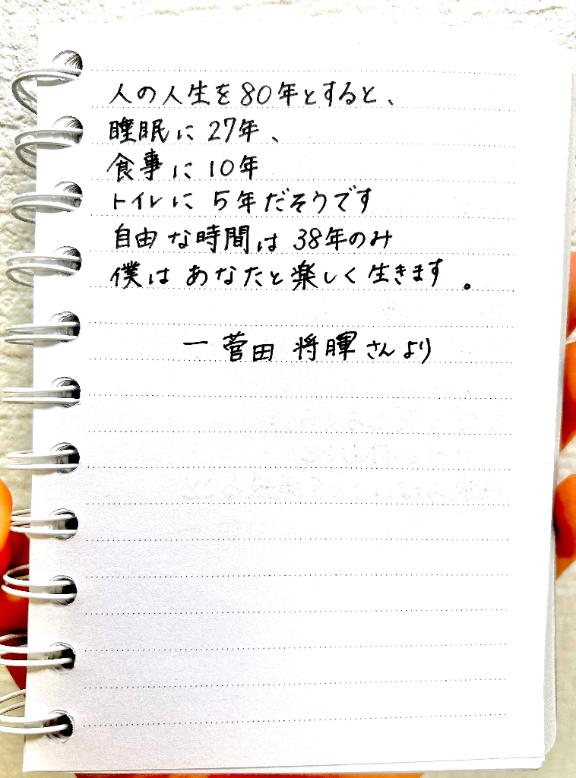 人の人生を80年とすると、
睡眠に27年、
食事に10年
トイレに5年だそうです
自由な時間は38年のみ
僕はあなたと楽しく生きます。
ー菅田 将暉さんより